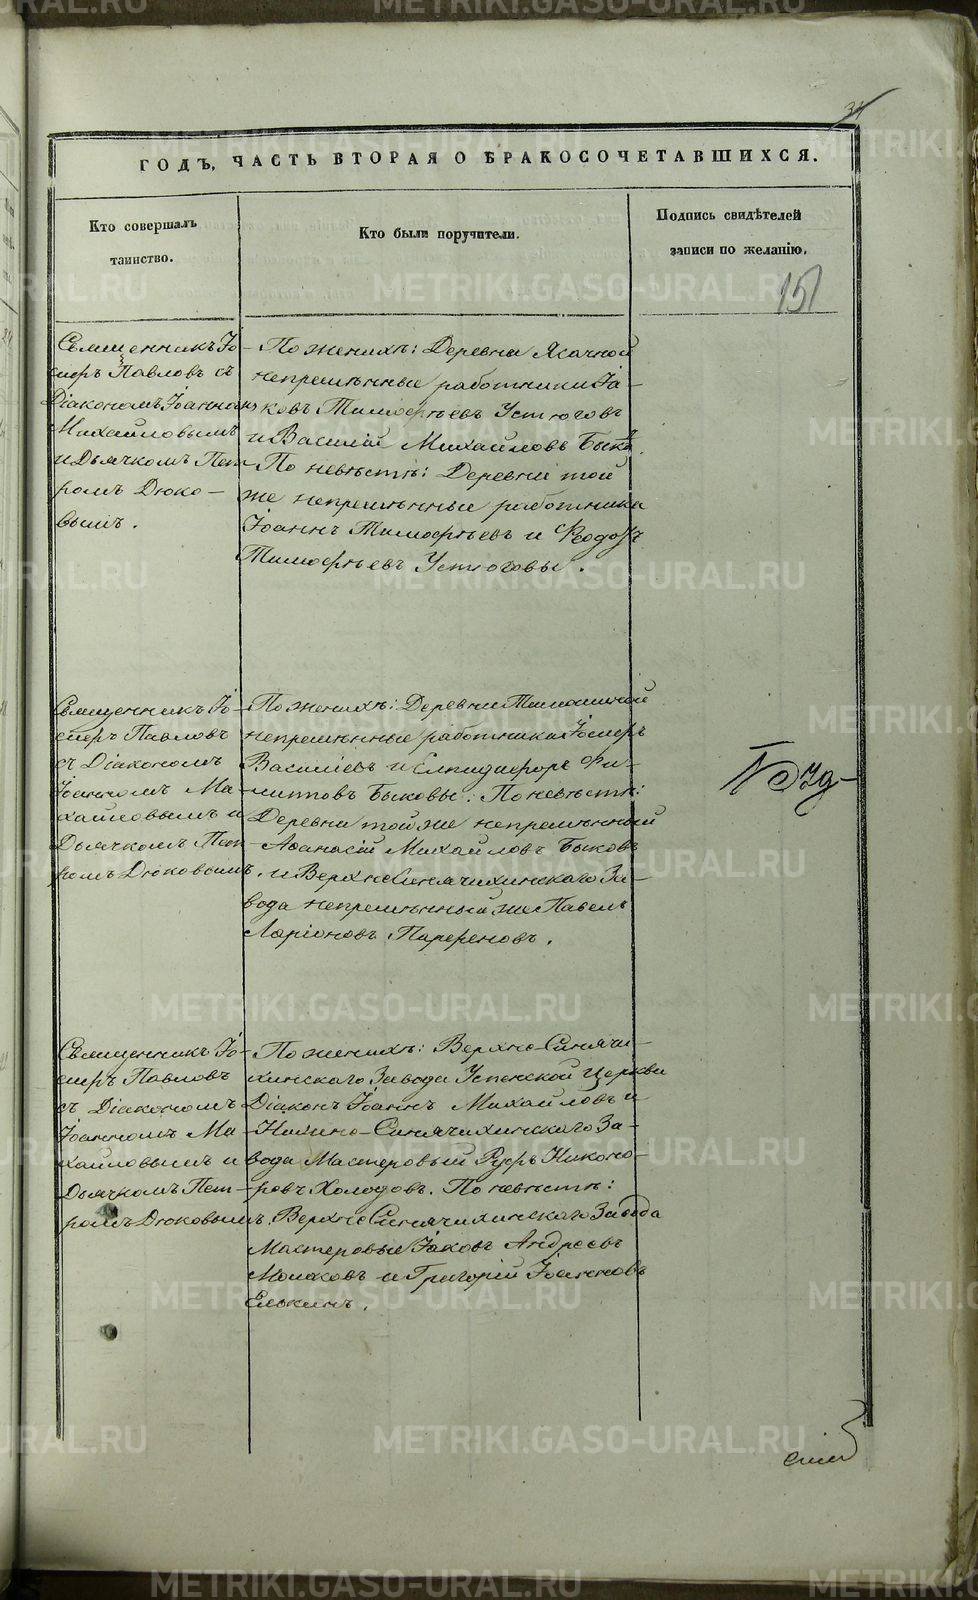 ГОДЪ, ЧАСТЬ ВТОРАЯ О БРАКОСОЧЕТАВШИХСЯ.
Кто совершалъ
таинство.
Кто были поручители.
Подпись свидѣтелей
записи по желанію.
151
Священникъ Іо-
сифъ Павловъ съ
Діакономъ Іоанномъ
Михайловымъ
и Дьячкомъ Пет-
ромъ Дюко-
вымъ.
По женихѣ: Деревни Ясачной
непремѣнные работники Іа-
ковъ Тимофѣевъ Устюговъ
и Василій Михайловъ Быковъ.
По невѣстѣ: Деревни той
же непремѣнные работники
Іоаннъ Тимофѣевъ и Ѳеодоръ
Тимофѣевъ Устюговы.
Священникъ Іо-
сифъ Павловъ
съ Діакономъ
Іоанномъ Ми-
хайловымъ и
Дьячкомъ Пет-
ромъ Дюковымъ.
По женихѣ: Деревни
непремѣнные работники Іосифъ
Васильевъ и Елпидифоръ Фи-
липповъ Быковы. По невѣстѣ:
Деревни той же непремѣнный
Аѳанасій Михайловъ Быковъ
и Верхне Синячихинскаго За-
вода непремѣнный же Павелъ
Ларіоновъ Парфеновъ.
Священникъ Іо-
сифъ Павловъ
съ Діакономъ
Іоанномъ Ми-
хайловымъ и
Дьячкомъ Пет-
ромъ Дюковымъ.
По женихѣ: Верхне-Синячи-
хинскаго Завода Успенской Церкви
Діаконъ Іоаннъ Михайловъ и
Нижне-Синячихинскаго За-
вода Мастеровый Руфъ Никоно-
ровъ Холодовъ. По невѣстѣ:
Верхне Синячихинскаго Завода
Мастеровые Іаковъ Андреевъ
и Григорій Іоанновъ
Елькинъ.
METRIKI.GASO-URAL.RU